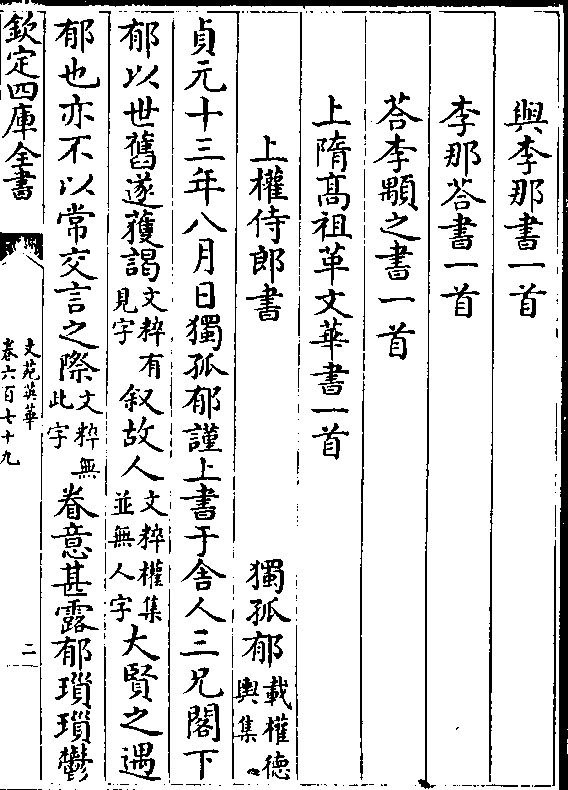 與李那書一首
李那荅書一首
荅李顒之書一首
上隋髙祖革文華書一首
上權侍郎書 獨孤郁載權德輿集
貞元十三年八月日獨孤郁謹上書于舍人三兄閣下
郁以世舊遂獲謁文粹有見字叙故人文粹權集並無人字大賢之遇
郁也亦不以常交言之際文粹無此字眷意甚露郁瑣瑣鬱
欽定四庫全書
文苑英華
卷六百七十九
二